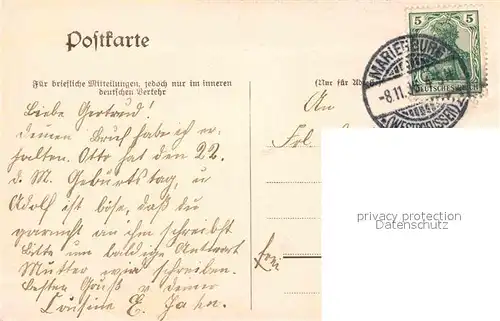 Postkarte
Für briefliche Mitteilungen, jedoch nur im inneren
deutschen Verkehr
Liebe Gertrud!
deinen Brief habe ich er-
halten. Otto hat den 22.
d. M. Geburtstag, u
Adolf ist böse, daß du
garnicht an ihm schreibst
Bitte um baldige Antwort
Mutter wird schreiben.
Besten Gruß v deiner
Cousine E. Jahn.
(Nur für
An
Frl.
frei
5 5
DEUTSCHES REICH
MARIENBURG
-8.11.
(WESTPREUSSEN)
privacy protection
www.oldthing.de